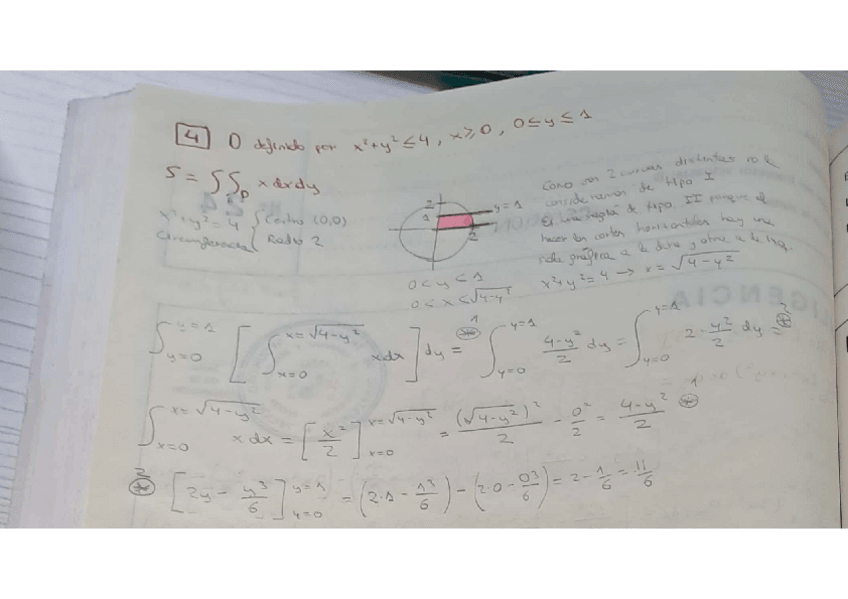 4 D definido por x²+y² ≤ 4, x ≥ 0, 0 ≤ y ≤ 1
S = ∫∫_D x dx dy
x²+y² = 4 { Centro (0,0)
Circunferencia { Radio 2
2
1
y=1
2
0 < y < 1
0 < x < √4-y²
Como son 2 curvas distintas no la
consideramos de tipo I
Es una región de tipo II porque al
hacer los cortes horizontales hay una
sola gráfica a la dcha y otra a la izq.
x²+y²=4 → x = √4-y²
∫_{y=0}^{y=1} [ ∫_{x=0}^{x=√4-y²} x dx ] dy =^{⊛1} ∫_{y=0}^{y=1} (4-y²)/2 dy = ∫_{y=0}^{y=1} 2 - y²/2 dy =^{⊛2}
∫_{x=0}^{x=√4-y²} x dx = [x²/2]_{x=0}^{x=√4-y²} = (√4-y²)²/2 - 0²/2 = (4-y²)/2 ⊛1
⊛2 [2y - y³/6]_{y=0}^{y=1} = (2·1 - 1³/6) - (2·0 - 0³/6) = 2 - 1/6 = 11/6